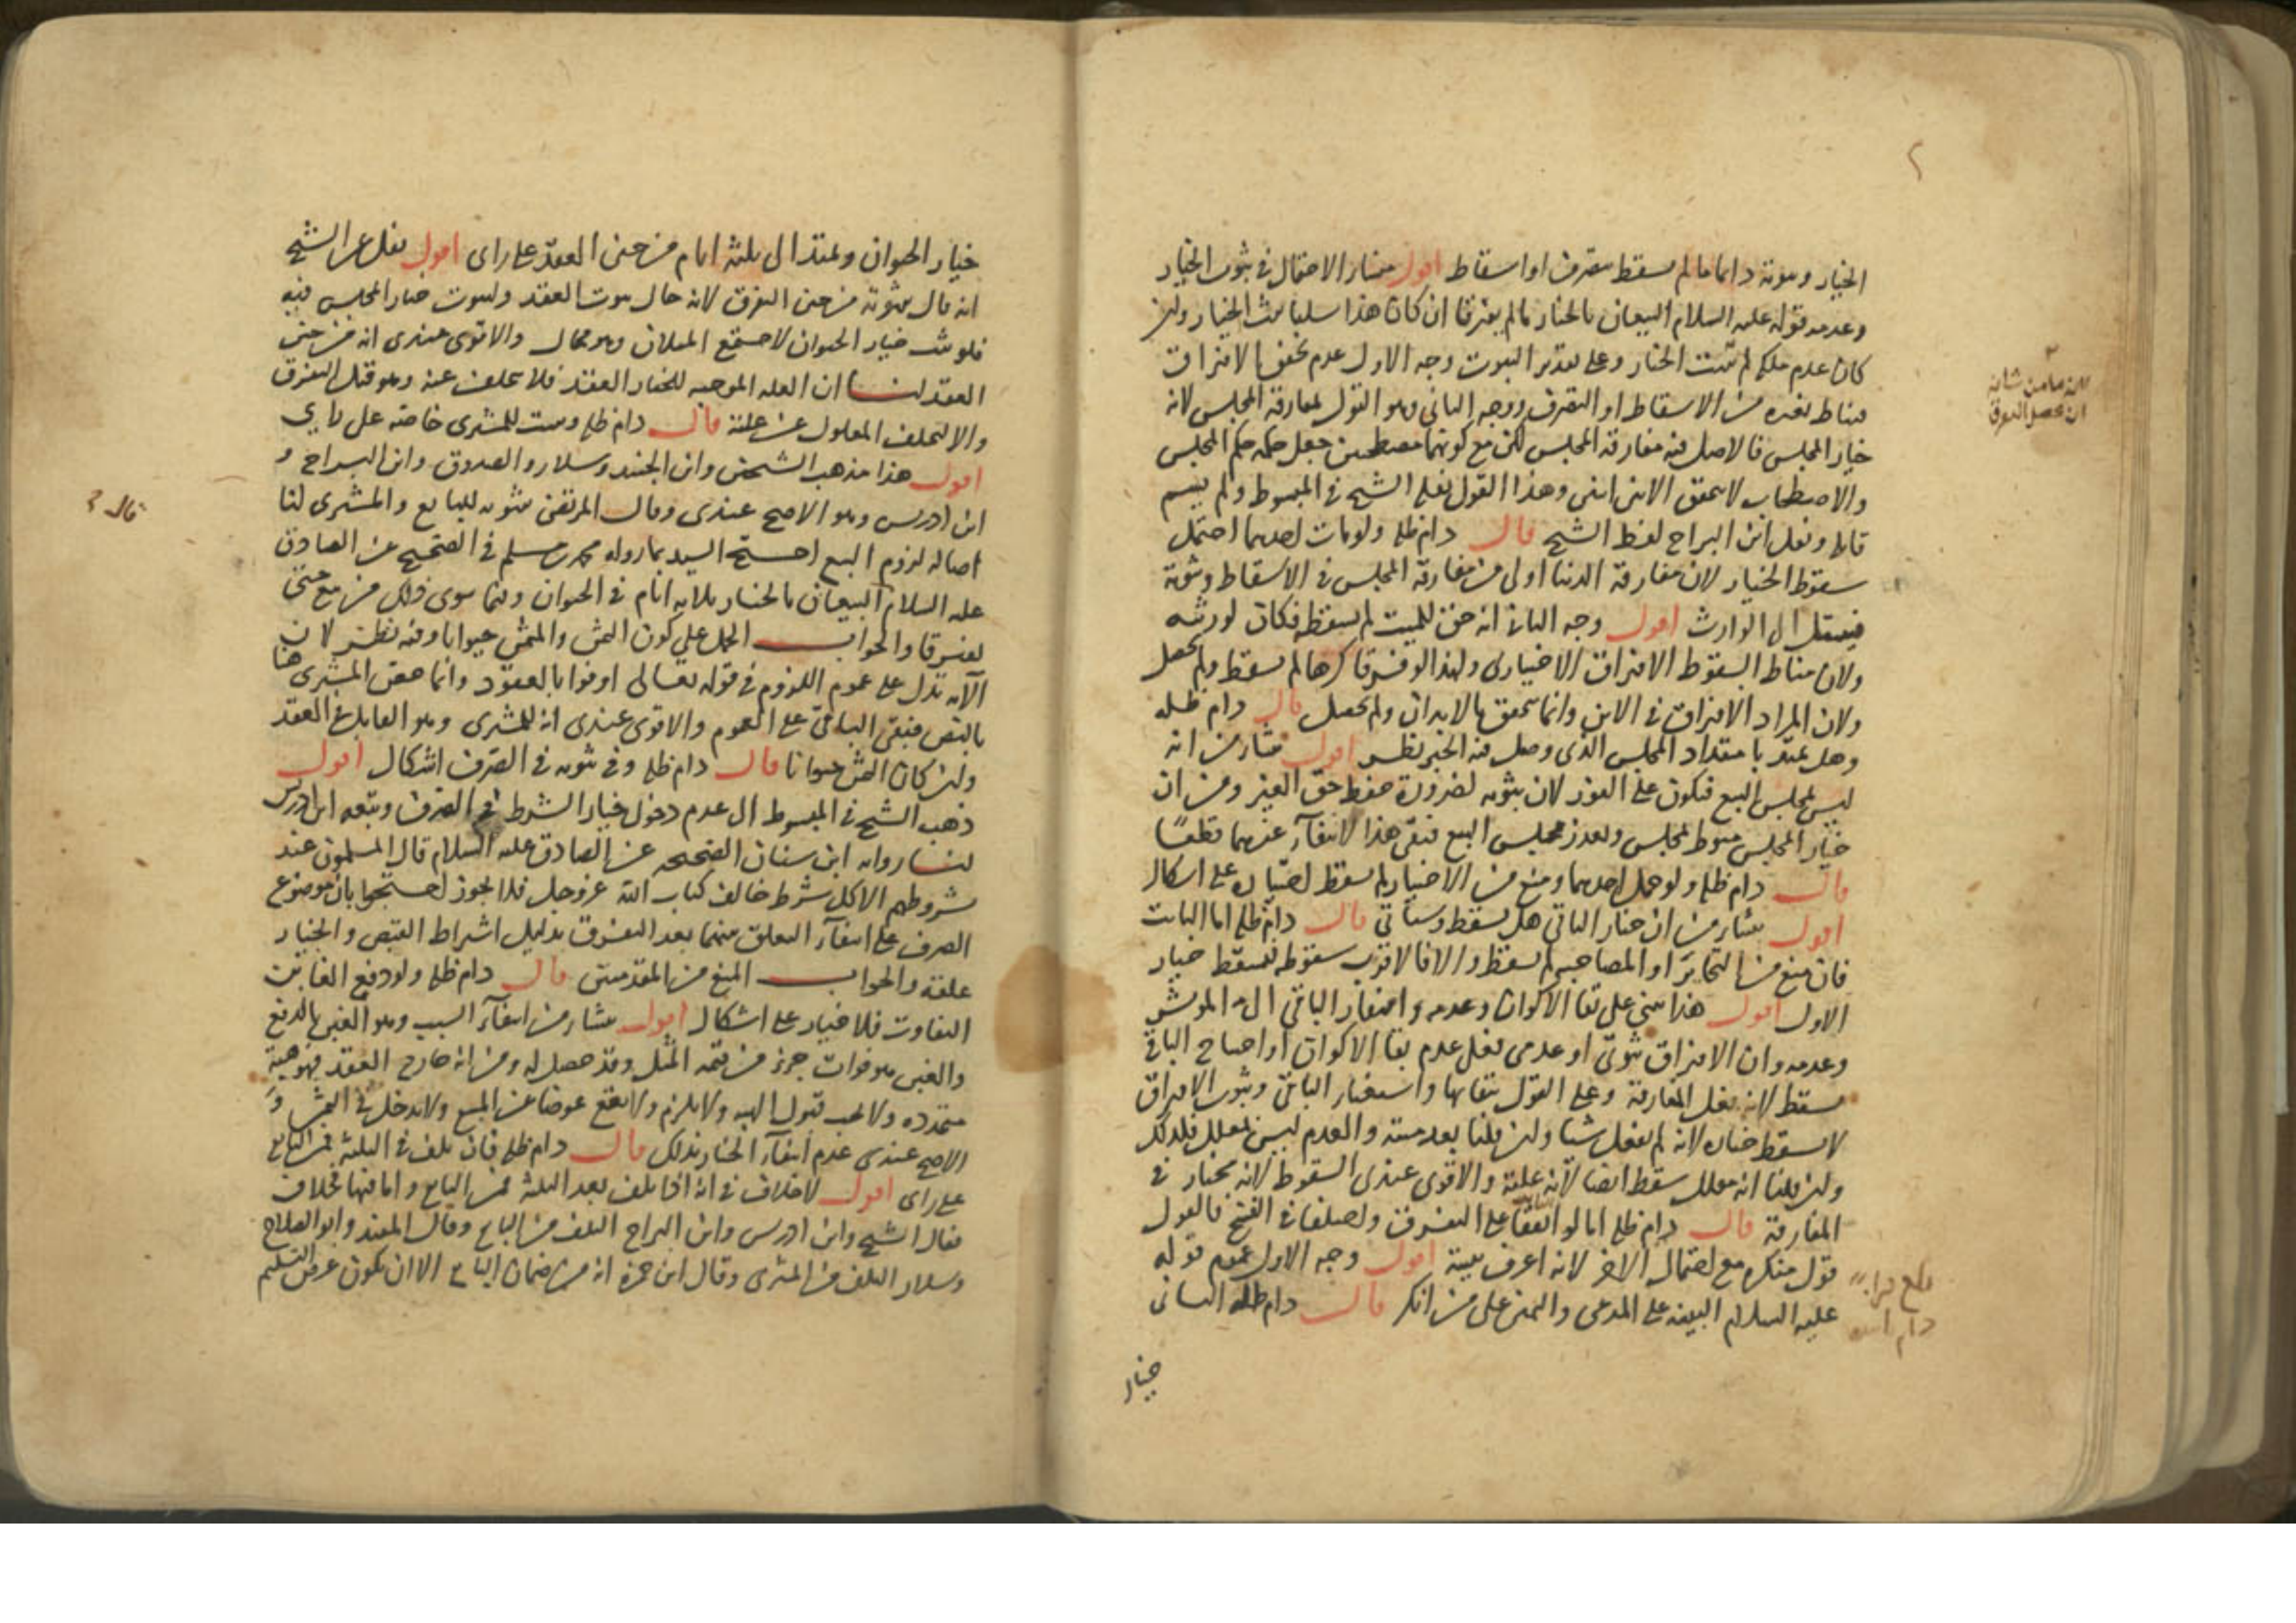 الخيار وثبوته دائما ما لم يسقط بتصرف او اسقاط اقول منشأ الاحتمال في ثبوت الخيار
وعدمه قوله عليه السلام البيعان بالخيار ما لم يفترقا ان كان هذا سلبا ثبت الخيار ولئن
كان عدم ملكة لم يثبت الخيار وعلى تقدير الثبوت وجه الاول عدم تحقق الافتراق
فيناط بغيره من الاسقاط او التصرف ووجه الثاني وهو القول بمفارقة المجلس لانه
خيار المجلس فالاصل فيه مفارقة المجلس لكن مع كونهما مصطحبين جعل حكمه حكم المجلس
والاصطحاب لا يتحقق الا في اثنين وهذا القول نقله الشيخ في المبسوط ولم يسم
قائله ونقل ابن البراج لفظ الشيخ قال دام ظله ولو مات احدهما احتمل
سقوط الخيار لان مفارقة الدنيا اولى من مفارقة المجلس في الاسقاط وثبوته
فينتقل الى الوارث اقول وجه الثاني انه حق للميت لم يسقطه فكان لورثته
ولان مناط السقوط الافتراق الاختياري ولهذا لو فترقا كرها لم يسقط ولم يحصل
ولان المراد الافتراق في الاين وانما يتحقق بالابدان ولم يحصل قال دام ظله
وهل يمتد بامتداد المجلس الذي وصل فيه الخبر نظر اقول منشأ من انه
ليس لمجلس البيع فيكون على الفور لان ثبوته لضرورة حفظ حق الغير ومن ان
خيار المجلس منوط بمجلس وتعذر مجلس البيع فبقي هذا لانتفاء غيرهما قطعا
قال دام ظله ولو حمل احدهما ومنع من الاختيار لم يسقط خياره على اشكال
اقول ينشأ من ان خيار الباقي هل يسقط وسيأتي قال دام ظله اما الثابت
فان منع من التخاير او المصاحبة لم يسقط والا فالاقرب سقوطه فيسقط خيار
الاول اقول هذا مبني على بقاء الاكوان وعدمه وافتقار الباقي الى المؤثر
وعدمه وان الافتراق ثبوتي او عدمي فعلى عدم بقاء الاكوان او احتياج الباقي
يسقط لانه فعل المفارقة وعلى القول ببقائها واستغناء الباقي وثبوت الافتراق
لا يسقط خياره لانه لم يفعل شيئا ولئن قلنا بعدميته والعدم ليس بمعلل فكذلك
ولئن قلنا انه معلل سقط ايضا لانه علته والاقوى عندي السقوط لانه مختار في
المفارقة قال دام ظله اما لو اتفقا على التفرق واختلفا في الفسخ فالقول
قول منكره مع احتمال الاخر لانه اعرف بنيته اقول وجه الاول عموم قوله
عليه السلام البينة على المدعي واليمين على من انكر قال دام ظله الثاني
خيار
عما من شانه
ان يحصل التفرق
خيار الحيوان ويمتد الى ثلثة ايام من حين العقد على راي اقول نقل عن الشيخ
انه قال بثبوته من حين التفرق لانه حال ثبوت العقد ولثبوت خيار المجلس فيه
فلو ثبت خيار الحيوان لاجتمع المثلان وهو محال والاقوى عندي انه من حين
العقد لنا ان العلة الموجبة للخيار العقد فلا يتخلف عنه وهو قبل التفرق
والا لتخلف المعلول عن علته قال دام ظله وثبت للمشتري خاصة على راي
اقول هذا مذهب الشيخين وابن الجنيد وسلار والصدوق وابن البراج و
ابن ادريس وهو الاصح عندي وقال المرتضى بثبوته للبايع والمشتري لنا
اصالة لزوم البيع احتج السيد بما رواه محمد بن مسلم في الصحيح عن الصادق
عليه السلام البيعان بالخيار ثلاثة ايام في الحيوان وفيما سوى ذلك من بيع حتى
يفترقا والجواب الحمل على كون الثمن والمثمن حيوانا وفيه نظر لان
الآية تدل على عموم اللزوم في قوله تعالى اوفوا بالعقود وانما خص المشتري هنا
بالنص فبقي الباقي على العموم والاقوى عندي انه للمشتري وهو القابل في العقد
ولئن كان الثمن حيوانا قال دام ظله وفي ثبوته في الصرف اشكال اقول
ذهب الشيخ في المبسوط الى عدم دخول خيار الشرط في الصرف وتبعه ابن ادريس
لنا رواية ابن سنان الصحيحة عن الصادق عليه السلام قال المسلمون عند
شروطهم الا كل شرط خالف كتاب الله عز وجل فلا يجوز احتجوا بان موضوع
الصرف على انتفاء التعلق بينهما بعد التفرق بدليل اشتراط القبض والخيار
علقة والجواب المنع من المقدمتين قال دام ظله ولو دفع الغابن
التفاوت فلا خيار على اشكال اقول ينشأ من انتفاء السبب وهو الغبن بالدفع
والغبن هو فوات جزء من قيمة المثل وقد حصل له ومن انه خارج العقد فهو هبة
متجددة ولا يجب قبول الهبة ولا يلزم ولا يقع عوضا عن المبيع ولا يدخل في الثمن و
الاصح عندي عدم انتفاء الخيار بذلك قال دام ظله فان تلف في الثلثة فمن البايع
على راي اقول لا خلاف في انه اذا تلف بعد الثلثة فمن البايع واما فيها فخلاف
فقال الشيخ وابن ادريس وابن البراج التلف من البايع وقال المفيد وابو الصلاح
وسلار التلف من المشتري وقال ابن حمزة انه من ضمان البايع الا ان يكون عرض التسليم